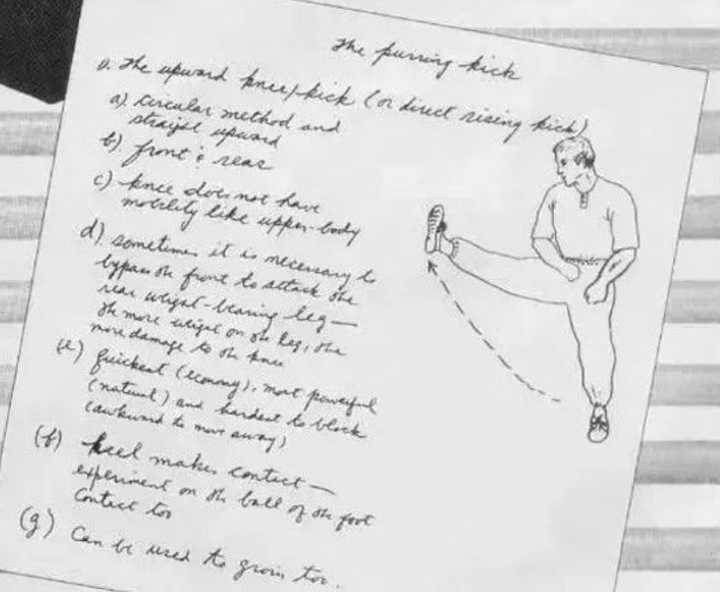 The purring kick
a. The upward knee/kick (or direct rising kick)
a) circular method and
straight upward
b) front & rear
c) knee does not have
mobility like upper-body
d) sometimes it is necessary to
bypass the front to attack the
rear weight-bearing leg —
the more weight on the leg, the
more damage to the knee
(e) quickest (economy), most powerful
(natural) and hardest to block
(awkward to move away)
(f) heel makes contact —
experiment on the ball of the foot
contact too
(g) Can be used to groin too.